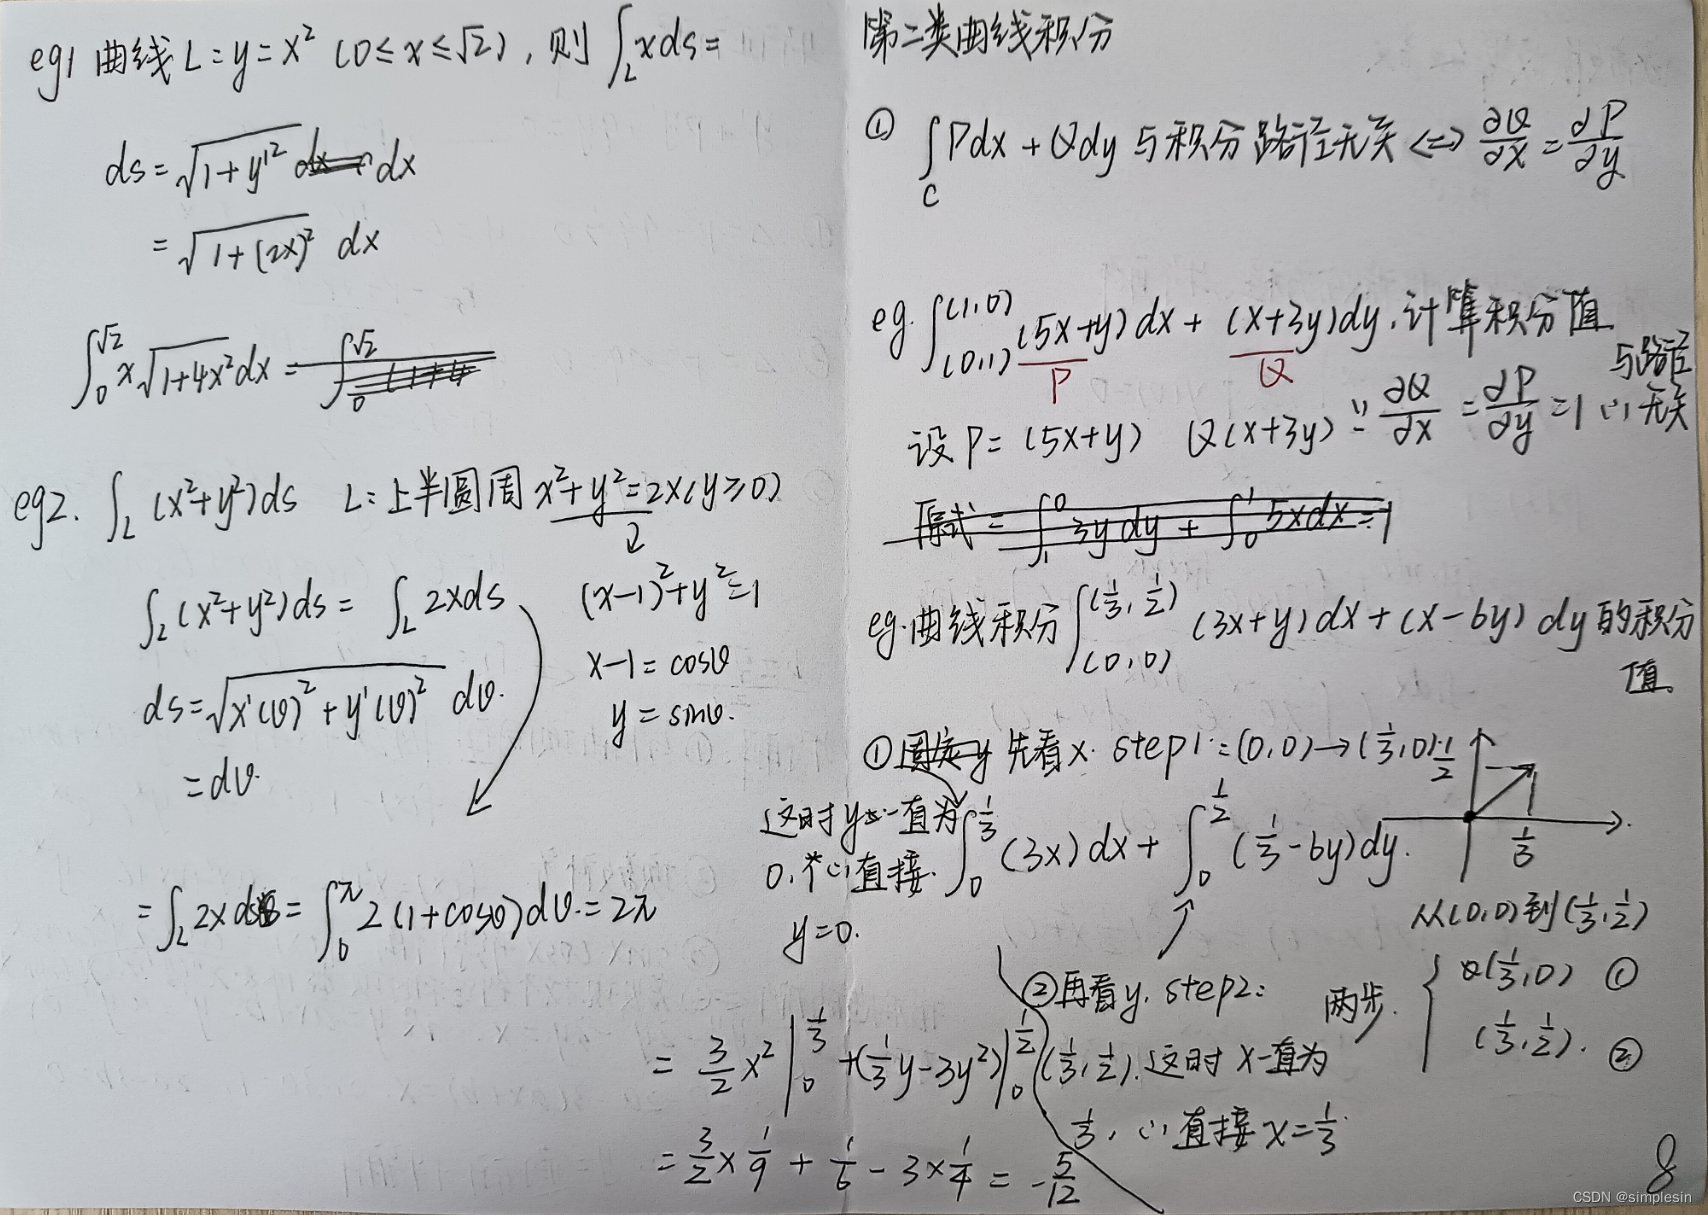 eg1 曲线 L: y=x² (0≤x≤√2), 则 ∫_L x ds =
ds = √(1+y'²) dx
= √(1+(2x)²) dx
∫_0^√2 x√(1+4x²) dx =
eg2. ∫_L (x²+y²)ds L: 上半圆周 x²+y²=2x (y≥0)
∫_L (x²+y²)ds = ∫_L 2x ds
(x-1)²+y²=1
x-1 = cosθ
y = sinθ.
ds = √(x'(θ)²+y'(θ)²) dθ.
= dθ.
= ∫_L 2x ds = ∫_0^π 2(1+cosθ)dθ. = 2π
第二类曲线积分
① ∫_C Pdx + Qdy 与积分路径无关 <=> ∂Q/∂x = ∂P/∂y
eg. ∫_(0,1)^(1,0) (5x+y)dx + (x+3y)dy, 计算积分值
P Q
设 P = (5x+y) Q(x+3y) ∵ ∂Q/∂x = ∂P/∂y = 1 ∴ 与路径无关
原式 = ∫_1^0 3y dy + ∫_0^1 5x dx = 1
eg. 曲线积分 ∫_(0,0)^(1/3, 1/2) (3x+y)dx + (x-6y)dy 的积分
值。
① 固定y 先看x. step1: (0,0)→(1/3,0).
1/2
1/3
这时y一直为
0, ∴直接
y=0.
∫_0^1/3 (3x)dx + ∫_0^1/2 (1/3-6y)dy.
从(0,0)到(1/3,1/2)
两步. { (1/3,0) ①
(1/3,1/2). ②
② 再看y. step2:
(1/3,1/2). 这时x一直为
1/3, ∴直接x=1/3.
= 3/2 x² |_0^1/3 + (1/3 y-3y²)|_0^1/2
= 3/2 × 1/9 + 1/6 - 3×1/4 = -5/12
8
CSDN @simplesin